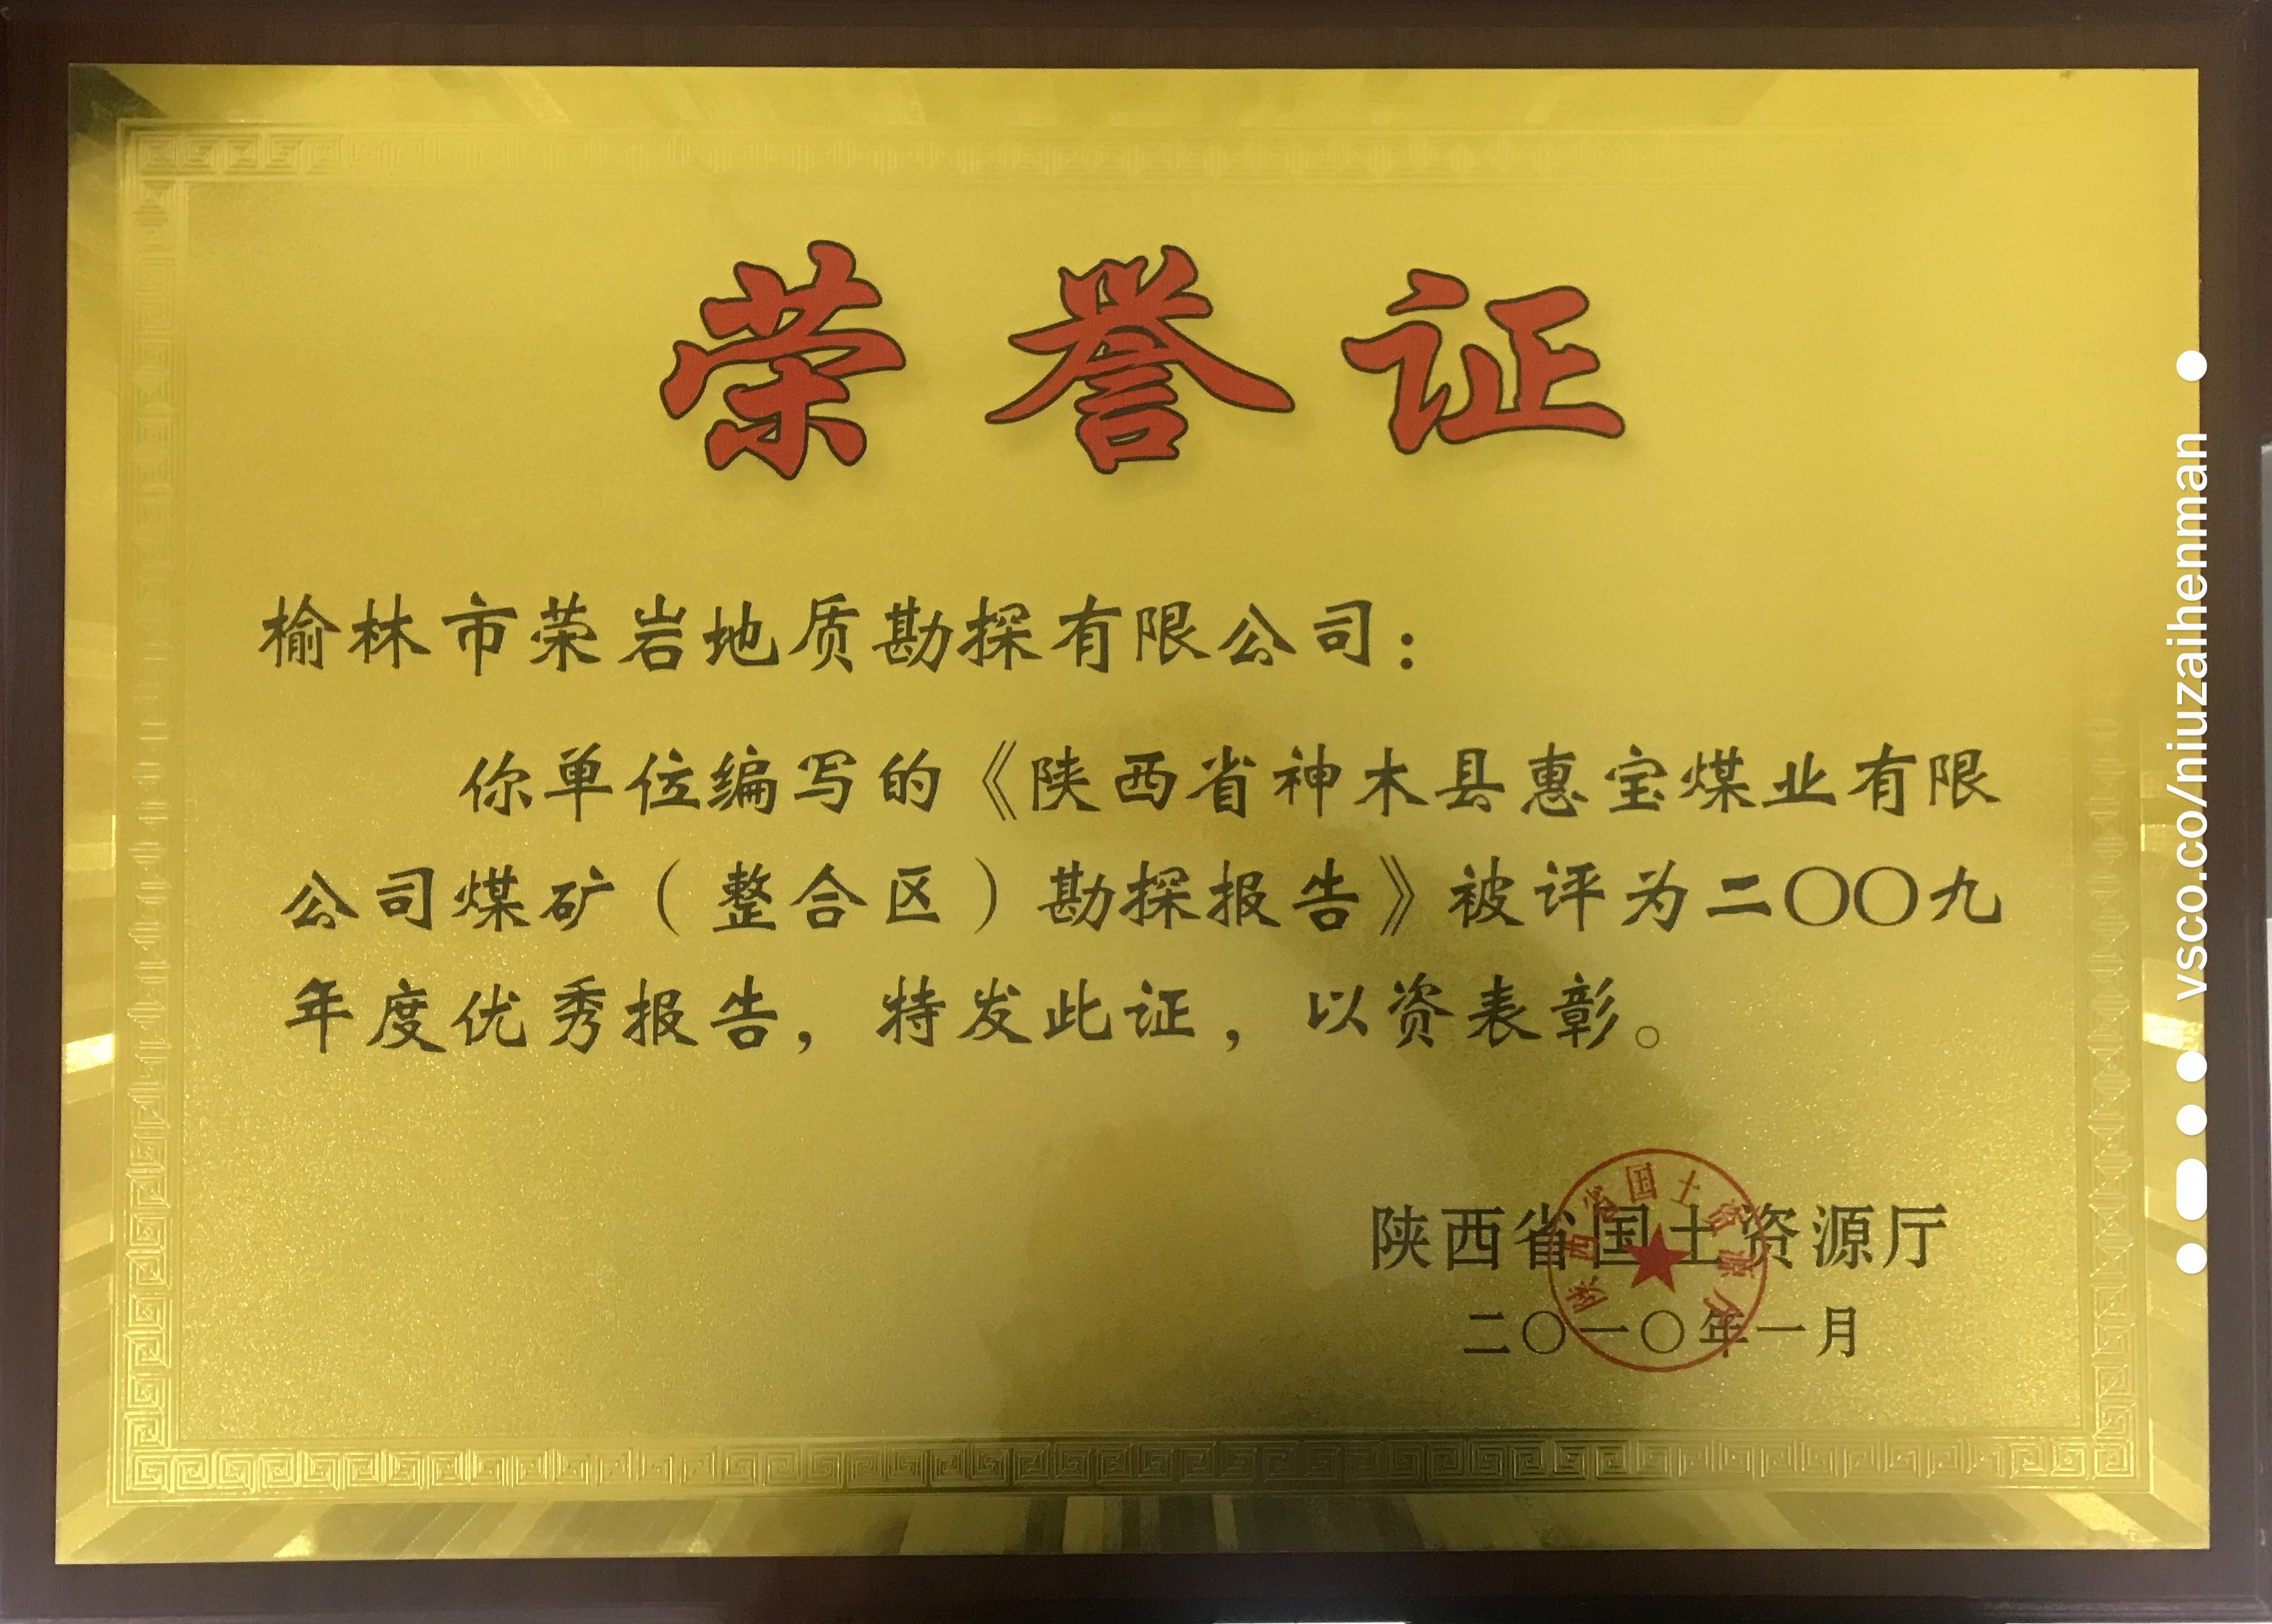 荣誉证
榆林市荣岩地质勘探有限公司：
你单位编写的《陕西省神木县惠宝煤业有限
公司煤矿（整合区）勘探报告》被评为二〇〇九
年度优秀报告，特发此证，以资表彰。
陕西省国土资源厅
二〇一〇年一月
陕西省国土资源厅
vsco.co/niuzaihenman